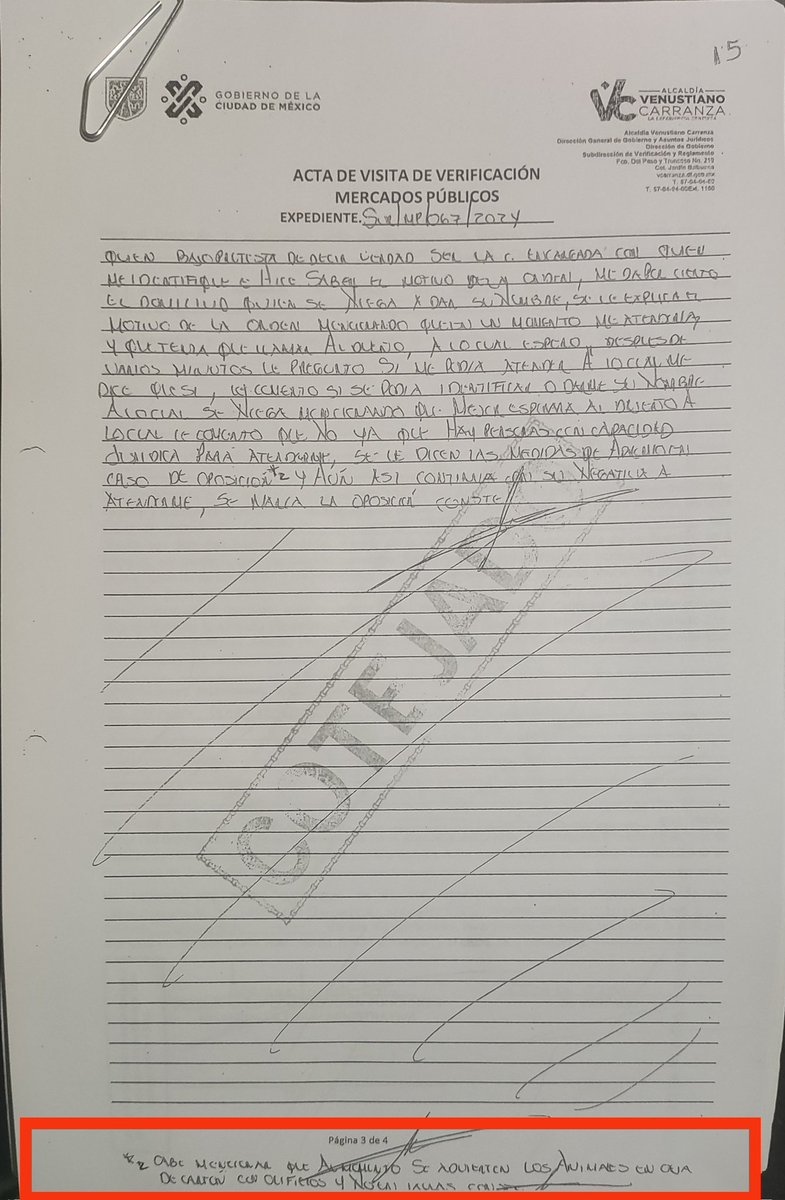 15
GOBIERNO DE LA
CIUDAD DE MÉXICO
ALCALDÍA
VENUSTIANO
CARRANZA
Alcaldía Venustiano Carranza
Dirección General de Gobierno y Asuntos Jurídicos
Dirección de Gobierno
Subdirección de Verificación y Reglamento
Fco. Del Paso y Troncoso No. 219
Col. Jardín Balbuena
vcarranza.df.gob.mx
ACTA DE VISITA DE VERIFICACIÓN
MERCADOS PÚBLICOS
EXPEDIENTE. /MP/067/2024
QUIEN BAJO PROTESTA DE DECIR VERDAD SER LA C. ENCARGADA CON QUIEN
ME IDENTIFIQUE E HICE SABER EL MOTIVO DE LA ORDEN, ME DA POR CIERTO
EL DOMICILIO QUIEN SE NIEGA A DAR SU NOMBRE, SE LE EXPLICA EL
MOTIVO DE LA ORDEN MENCIONANDO QUE EN UN MOMENTO ME ATENDERIA
Y QUE TENIA QUE LLAMAR AL DUEÑO, A LO CUAL ESPERO, DESPUES DE
VARIOS MINUTOS LE PREGUNTO SI ME PODIA ATENDER A LO CUAL ME
DICE QUE SI, LE COMENTO SI SE PODIA IDENTIFICAR O DARME SU NOMBRE
A LO CUAL SE NIEGA MENCIONANDO QUE MEJOR ESPERARA AL DUEÑO A
LO CUAL LE COMENTO QUE NO YA QUE HAY PERSONAS CON CAPACIDAD
JURIDICA PARA ATENDERME, SE LE DICEN LAS MEDIDAS DE APREMIO EN
CASO DE OPOSICION *2 Y AÚN ASI CONTINUA CON SU NEGATIVA A
ATENDERME, SE MARCA LA OPOSICIÓN CONSTE
COTEJADO
Página 3 de 4
*2 CABE MENCIONAR QUE AL MOMENTO SE ADVIERTEN LOS ANIMALES EN CAJA
DE CARTON CON ORIFICIOS Y NO EN JAULAS CONSTE